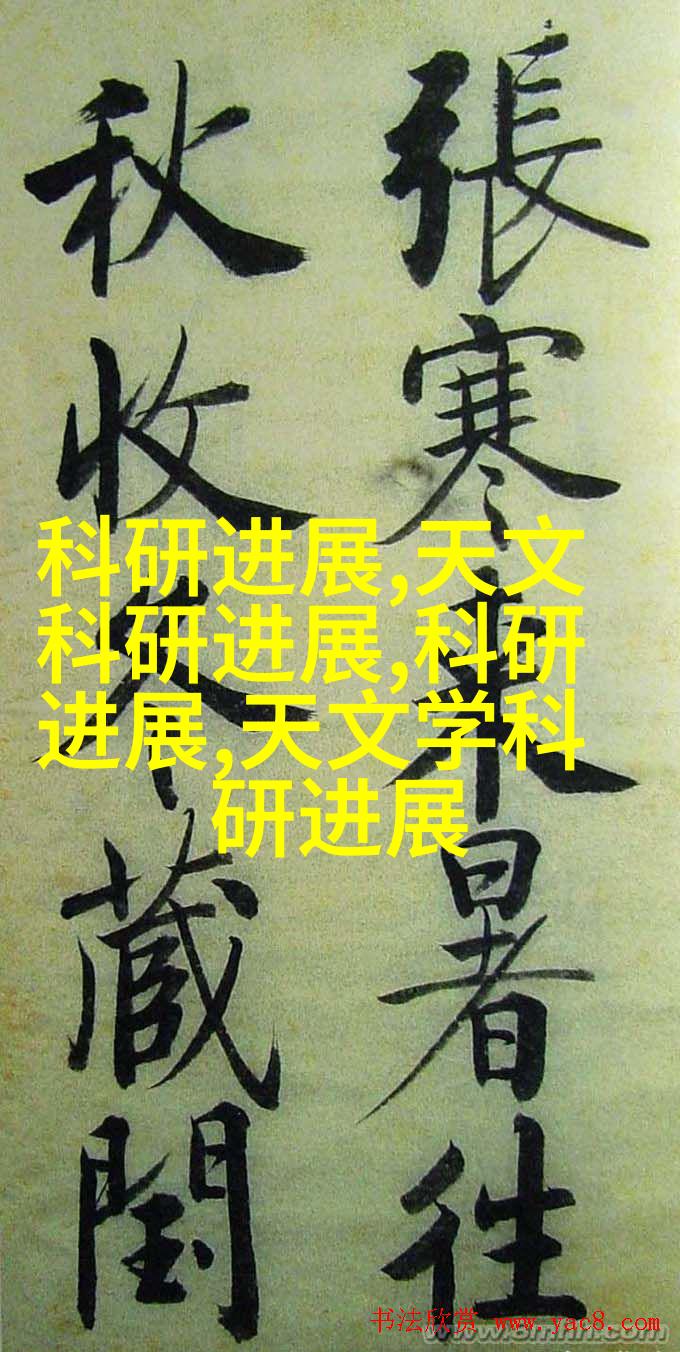 張寒来暑往
秋收冬蔵閏
科研进展,天文
科研进展,科研
进展,天文学科
研进展
书法欣赏 www.yac8.com